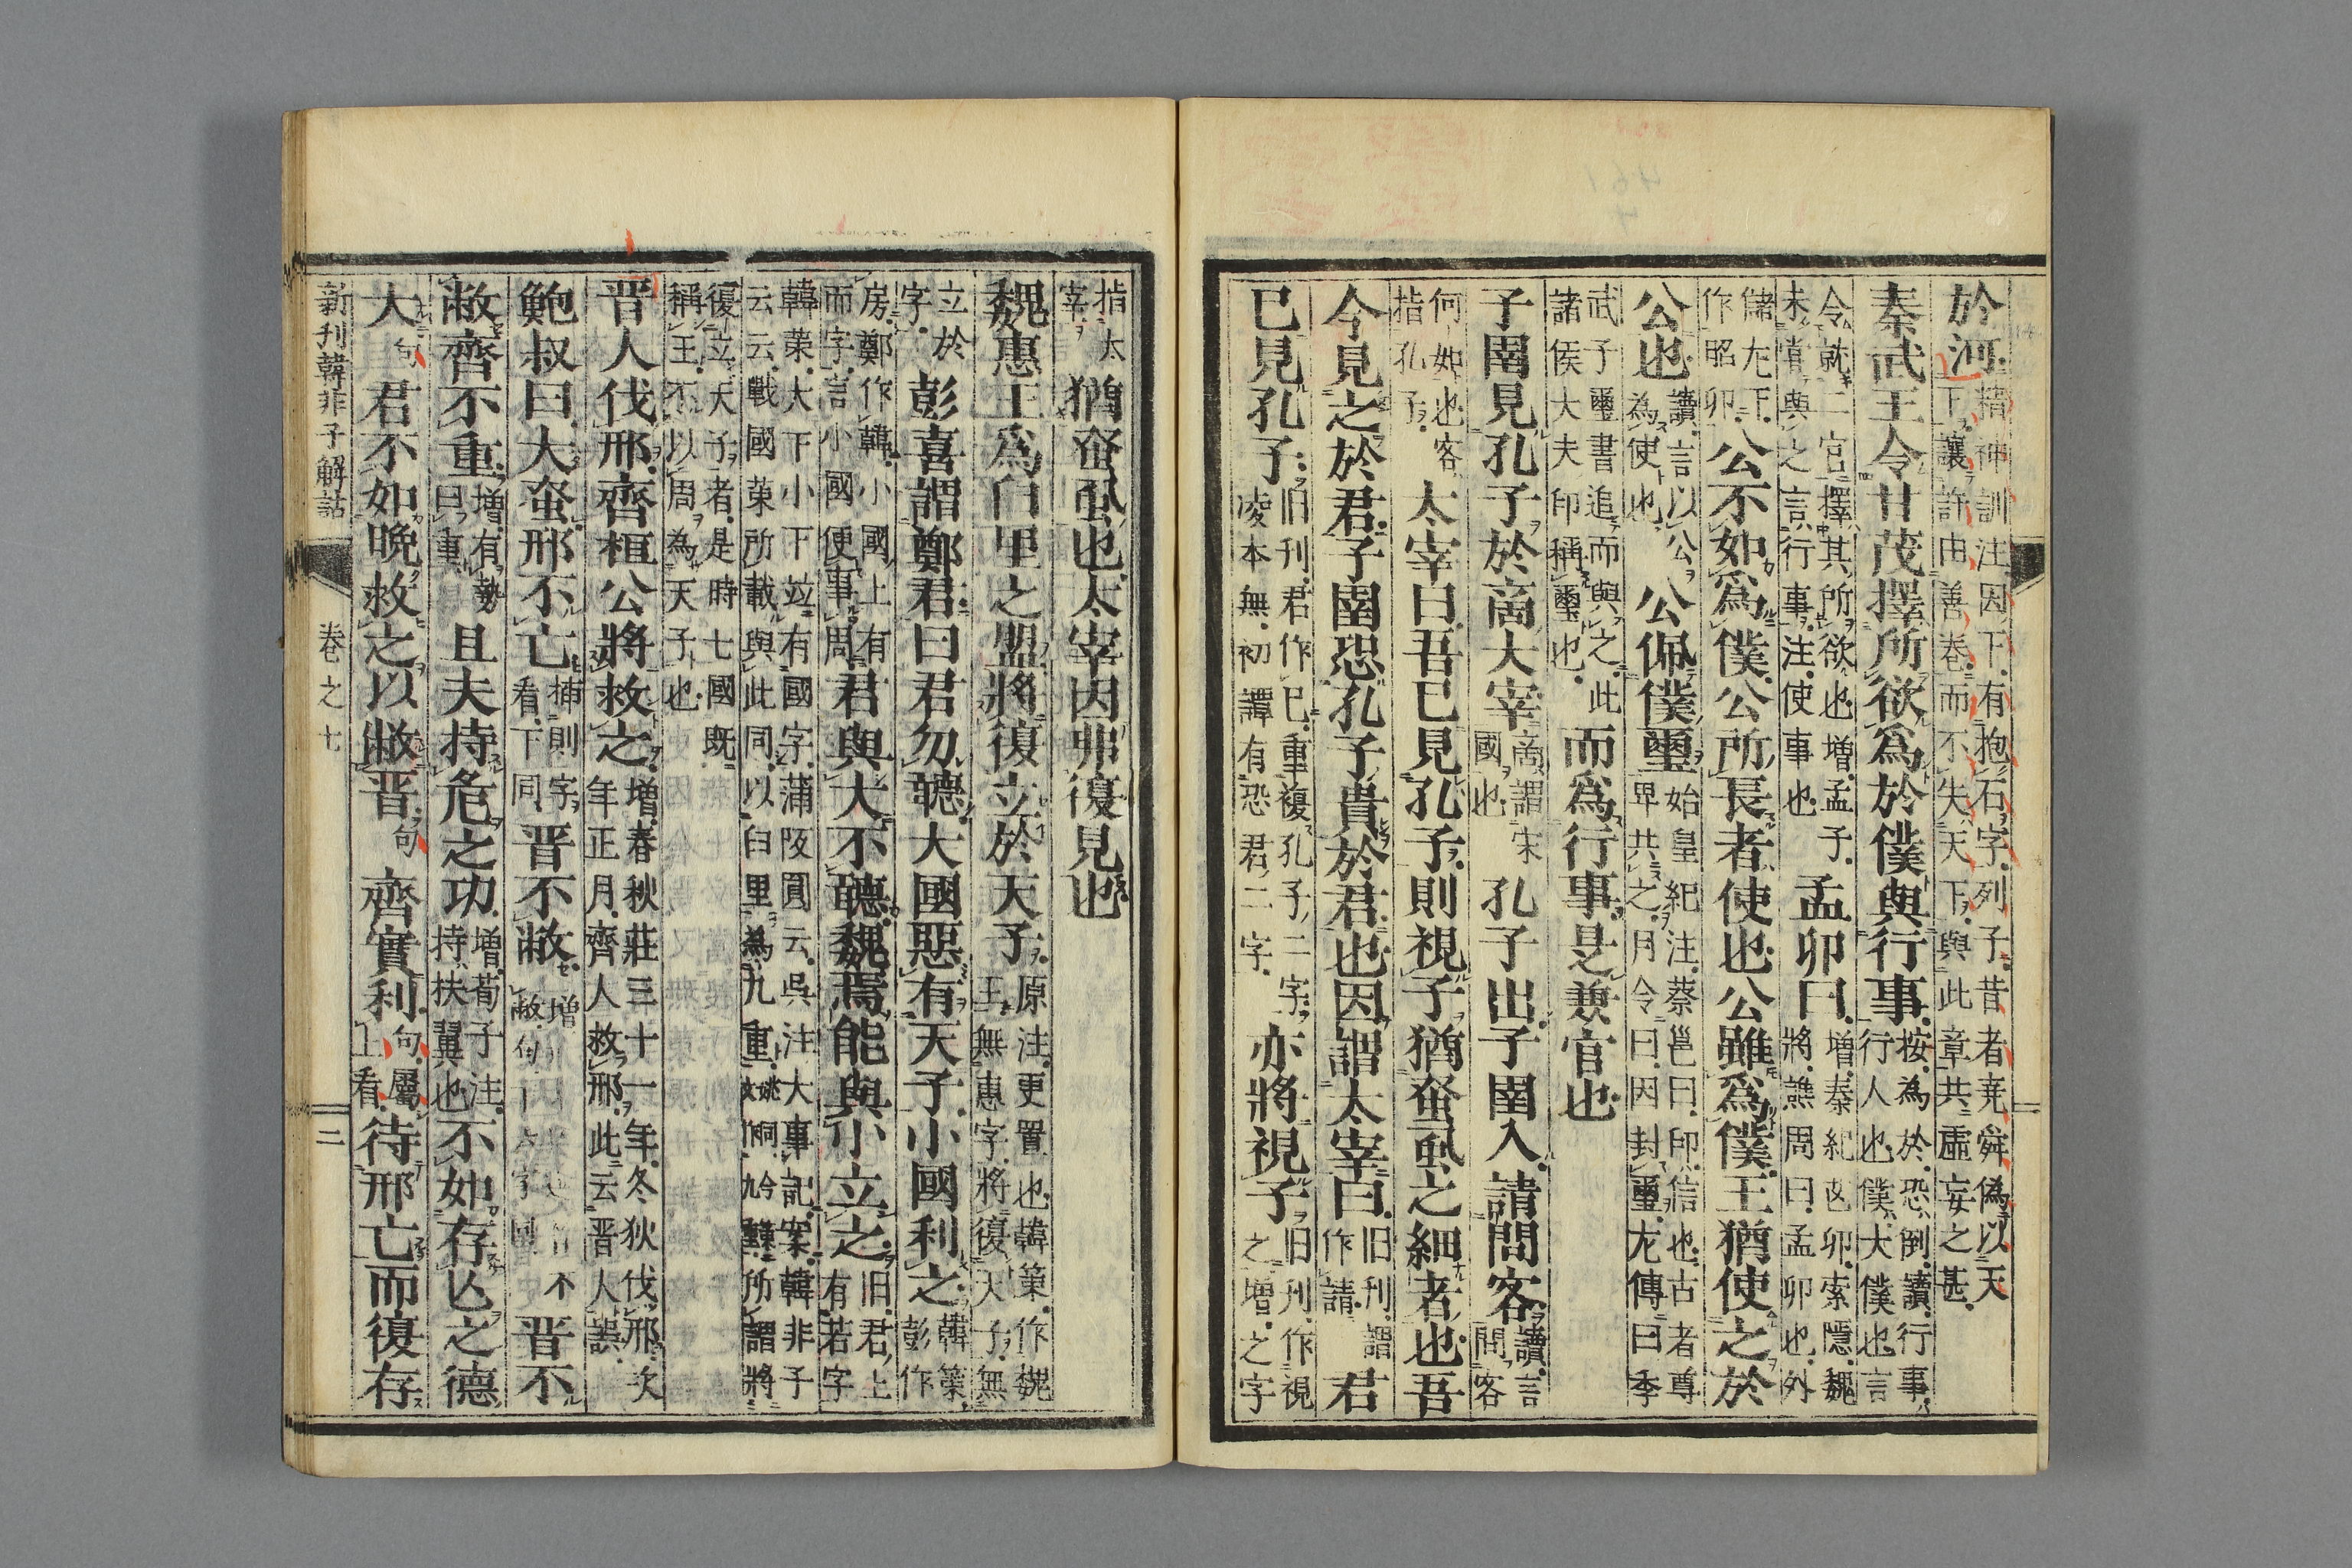 於河精神訓注因下有抱石字列子昔者堯舜偽以天
下讓許由善卷而不失天下與此章共虛妄之甚
秦武王令甘茂擇所欲爲於僕與行事按為於恐倒讀行事
行人也僕大僕也言
令就二官擇其所欲也增孟子
未嘗與之言行事注使事也孟卯曰增秦紀芒卯索隱魏
將譙周曰孟卯也外
儲左下
作昭卯公不如爲僕公所長者使也公雖爲僕王猶使之於
公也讀言以公
為使也公佩僕璽始皇紀注蔡邕曰印信也古者尊
卑共之月令曰因封璽左傳曰季
武子璽書追而與之此
諸侯大夫印稱璽也而爲行事是兼官也
子圉見孔子於商大宰商謂宋
國也孔子出子圉入請問客讀言
問客
何如也客
指孔子太宰曰吾已見孔子則視子猶蚤虱之細者也吾
今見之於君子圉恐孔子貴於君也因謂太宰曰旧刊謂
作請君
已見孔子旧刊君作已重複孔子二字
凌本無初譚有恐君二字亦將視子旧刊作視
之增之字
指太
宰猶蚤虱也太宰因弗復見也
魏惠王爲臼里之盟將復立於天子原注更置也韓策作魏
王無惠字將復天子無
立於
字彭喜謂鄭君曰君勿聽大國惡有天子小國利之韓策
彭作
房鄭作韓小國上有
而字言小國便事周君與大不聽魏焉能與小立之旧君上
有若字
韓策大下小下竝有國字蒲阪圓云吳注大事記案韓非子
云云戰國策所載與此同以臼里為九重姚作
復立天子者是時七國既
稱王不以周為天子也
晋人伐邢齊桓公將救之增春秋莊三十二年冬狄伐邢次
年正月齊人救邢此云晋人誤
鮑叔曰大蚤邢不亡補則字
看下同晋不敝增
敝句晋不
敝齊不重增有勢
曰重且夫持危之功增荀子注
持扶翼也不如存亾之德
大句君不如晚救之以敝晋句齊實利句屬
上看待邢亡而復存
新刊韓非子解詁 卷之七 二